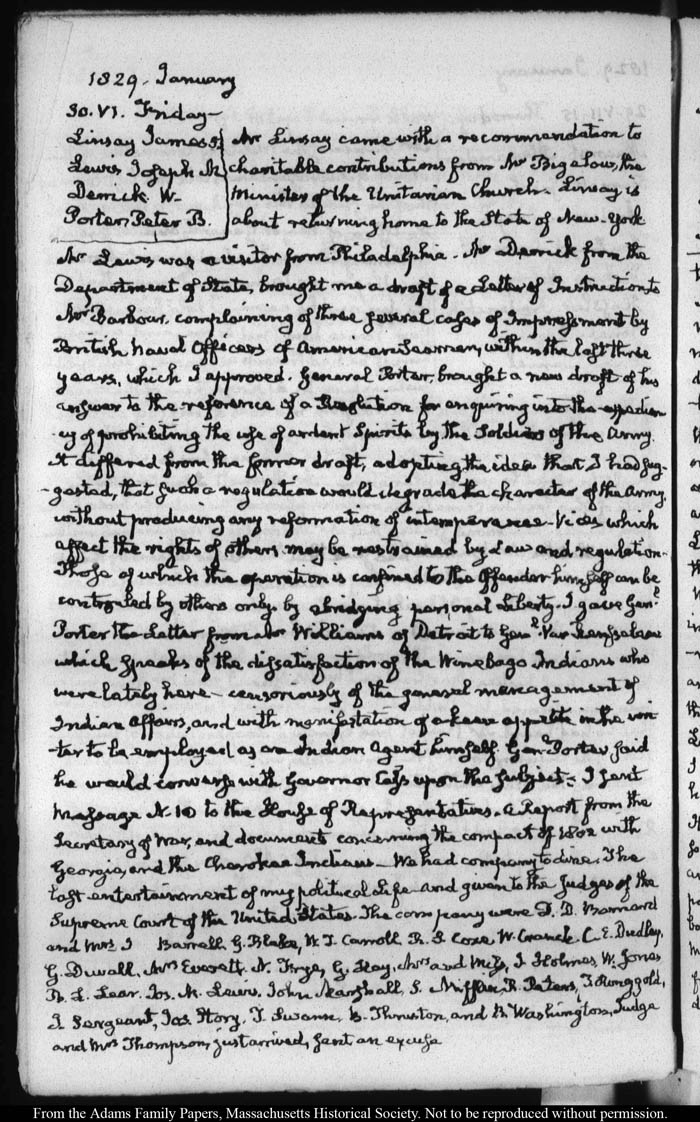 1829. January
30. VI. Friday—
Linsay James } Mr Linsay came with a recommendation to
Lewis Joseph M } charitable contributions from Mr Bigelow, the
Derrick. W— } Minister of the Unitarian Church. Linsay is
Porter, Peter B. } about returning home to the State of New-York
Mr Lewis was a visitor from Philadelphia. Mr Derrick from the
Department of State, brought me a draft of a Letter of Instructions to
Mr Barbour, complaining of three several cases of Impressment by
British Naval Officers of American Seamen, within the last three
years, which I approved. General Porter, brought a new draft of his
answer to the reference of a Resolution for enquiring into the expedien
cy of prohibiting the use of ardent Spirits by the Soldiers of the Army.
It differed from the former draft, adopting the idea that I had sug-
-gested, that such a regulation would degrade the character of the Army,
without producing any reformation of intemperance. Vices which
affect the rights of others may be restrained by Law and regulation—
Those of which the operation is confined to the Offender himself can be
controuled by others only by abridging personal Liberty. I gave Genl.
Porter the Letter from Mr Williams of Detroit to Genl. Van Rensselaer
which speaks of the dissatisfaction of the Winebago Indians who
were lately here— censoriously of the general management of
Indian Affairs, and with manifestation of a keen appetite in the wri
-ter to be employed as an Indian Agent himself. Genl. Porter said
he would converse with Governor Cass upon the subject. I sent
Message N. 10 to the House of Representatives. A Report from the
Secretary of War, and documents concerning the compact of 1802 with
Georgia, and the Cherokee Indians— We had company to dine. The
last entertainment of my political Life— and given to the Judges of the
Supreme Court of the United States. The company were D. D. Barnard
and Mrs. J Barrell, G. Blake, W. T. Carroll, R. S. Coxe, W. Cranch, C. E. Dudley,
G. Duvall, Mrs Everett, N. Frye, G. Hay, Mrs and Miss, J. Holmes, W. Jones
B. L. Lear, Jos. M. Lewis, John Marshall, S. Mifflin, R. Peters, T. Ringgold,
J. Sergeant, Jos. Story, T. Swann, B. Thruston, and B. Washington, Judge
and Mrs Thompson, just arrived, sent an excuse
From the Adams Family Papers, Massachusetts Historical Society. Not to be reproduced without permission.